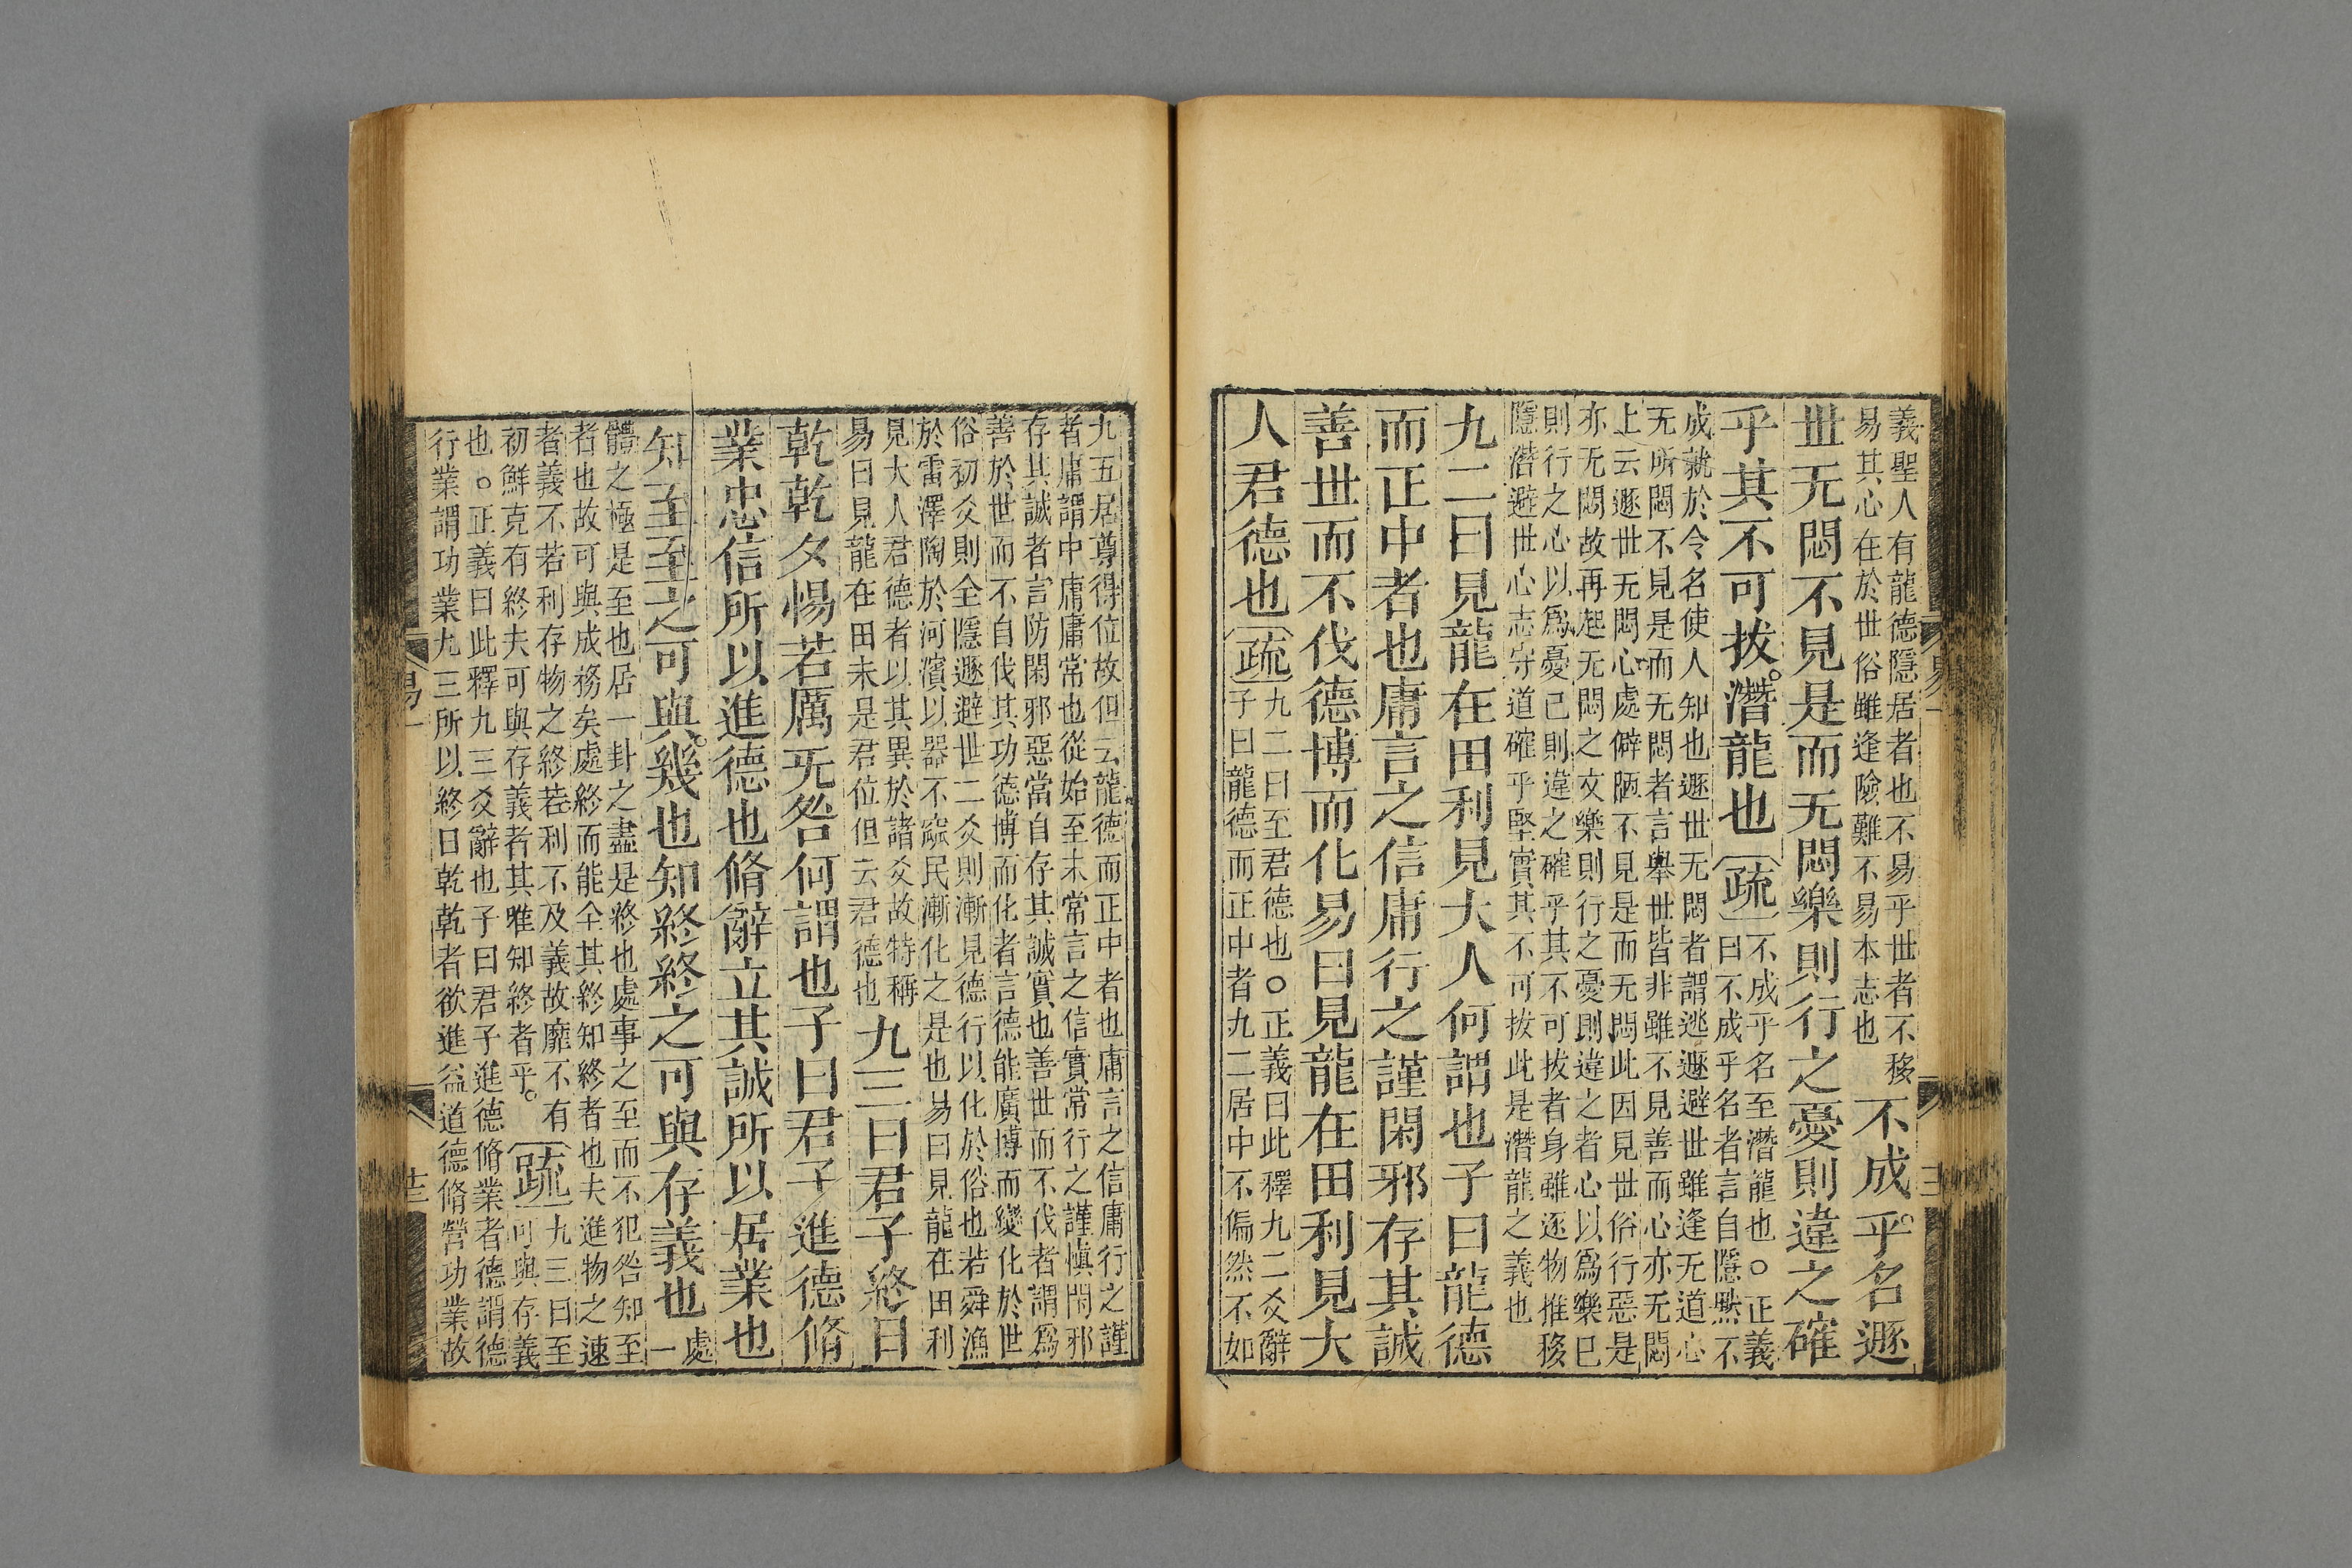 義聖人有龍德隱居者也不易乎世者不移
易其心在於世俗雖逢險難不易本志也
不成乎名遯
世无悶不見是而无悶樂則行之憂則違之確
乎其不可拔潛龍也疏
不成乎名至潛龍也○正義
曰不成乎名者言自隱黙不
成就於令名使人知也遯世无悶者謂逃遯避世雖逢无道心
无所悶不見是而无悶者言舉世皆非雖不見善而心亦无悶
上云遯世无悶心處僻陋不見是而无悶此因見世俗行惡是
亦无悶故再起无悶之文樂則行之憂則違之者心以爲樂已
則行之心以爲憂己則違之確乎其不可拔者身雖逐物推移
隱潛避世心志守道確乎堅實其不可拔此是潛龍之義也
九二曰見龍在田利見大人何謂也子曰龍德
而正中者也庸言之信庸行之謹閑邪存其誠
善世而不伐德博而化易曰見龍在田利見大
人君德也疏
九二曰至君德也○正義曰此釋九二爻辭
子曰龍德而正中者九二居中不偏然不如
九五居尊得位故但云龍德而正中者也庸言之信庸行之謹
者庸謂中庸庸常也從始至末常言之信實常行之謹慎閑邪
存其誠者言防閑邪惡當自存其誠實也善世而不伐者謂爲
善於世而不自伐其功德博而化者言德能廣博而變化於世
俗初爻則全隱遯避世二爻則漸見德行以化於俗也若舜漁
於雷澤陶於河濱以器不窳民漸化之是也易曰見龍在田利
見大人君德者以其異於諸爻故特稱
易曰見龍在田未是君位但云君德也
九三曰君子終日
乾乾夕惕若厲无咎何謂也子曰君子進德脩
業忠信所以進德也脩辭立其誠所以居業也
知至至之可與幾也知終終之可與存義也
處
一
體之極是至也居一卦之盡是終也處事之至而不犯咎知至
者也故可與成務矣處終而能全其終知終者也夫進物之速
者義不若利存物之終若利不及義故靡不有
初鮮克有終夫可與存義者其唯知終者乎
疏
九三曰至
可與存義
也○正義曰此釋九三爻辭也子曰君子進德脩業者德謂德
行業謂功業九三所以終日乾乾者欲進益道德脩營功業故
易一